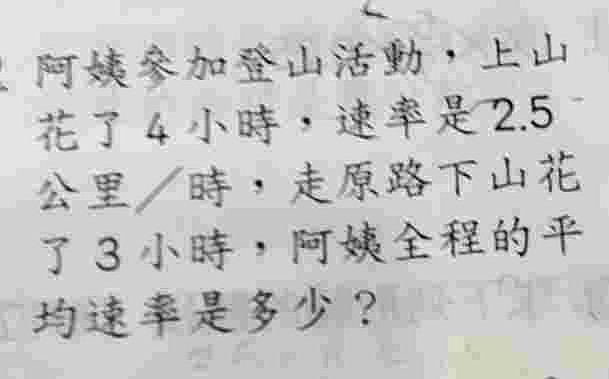 阿姨參加登山活動，上山
花了4小時，速率是2.5
公里／時，走原路下山花
了3小時，阿姨全程的平
均速率是多少？